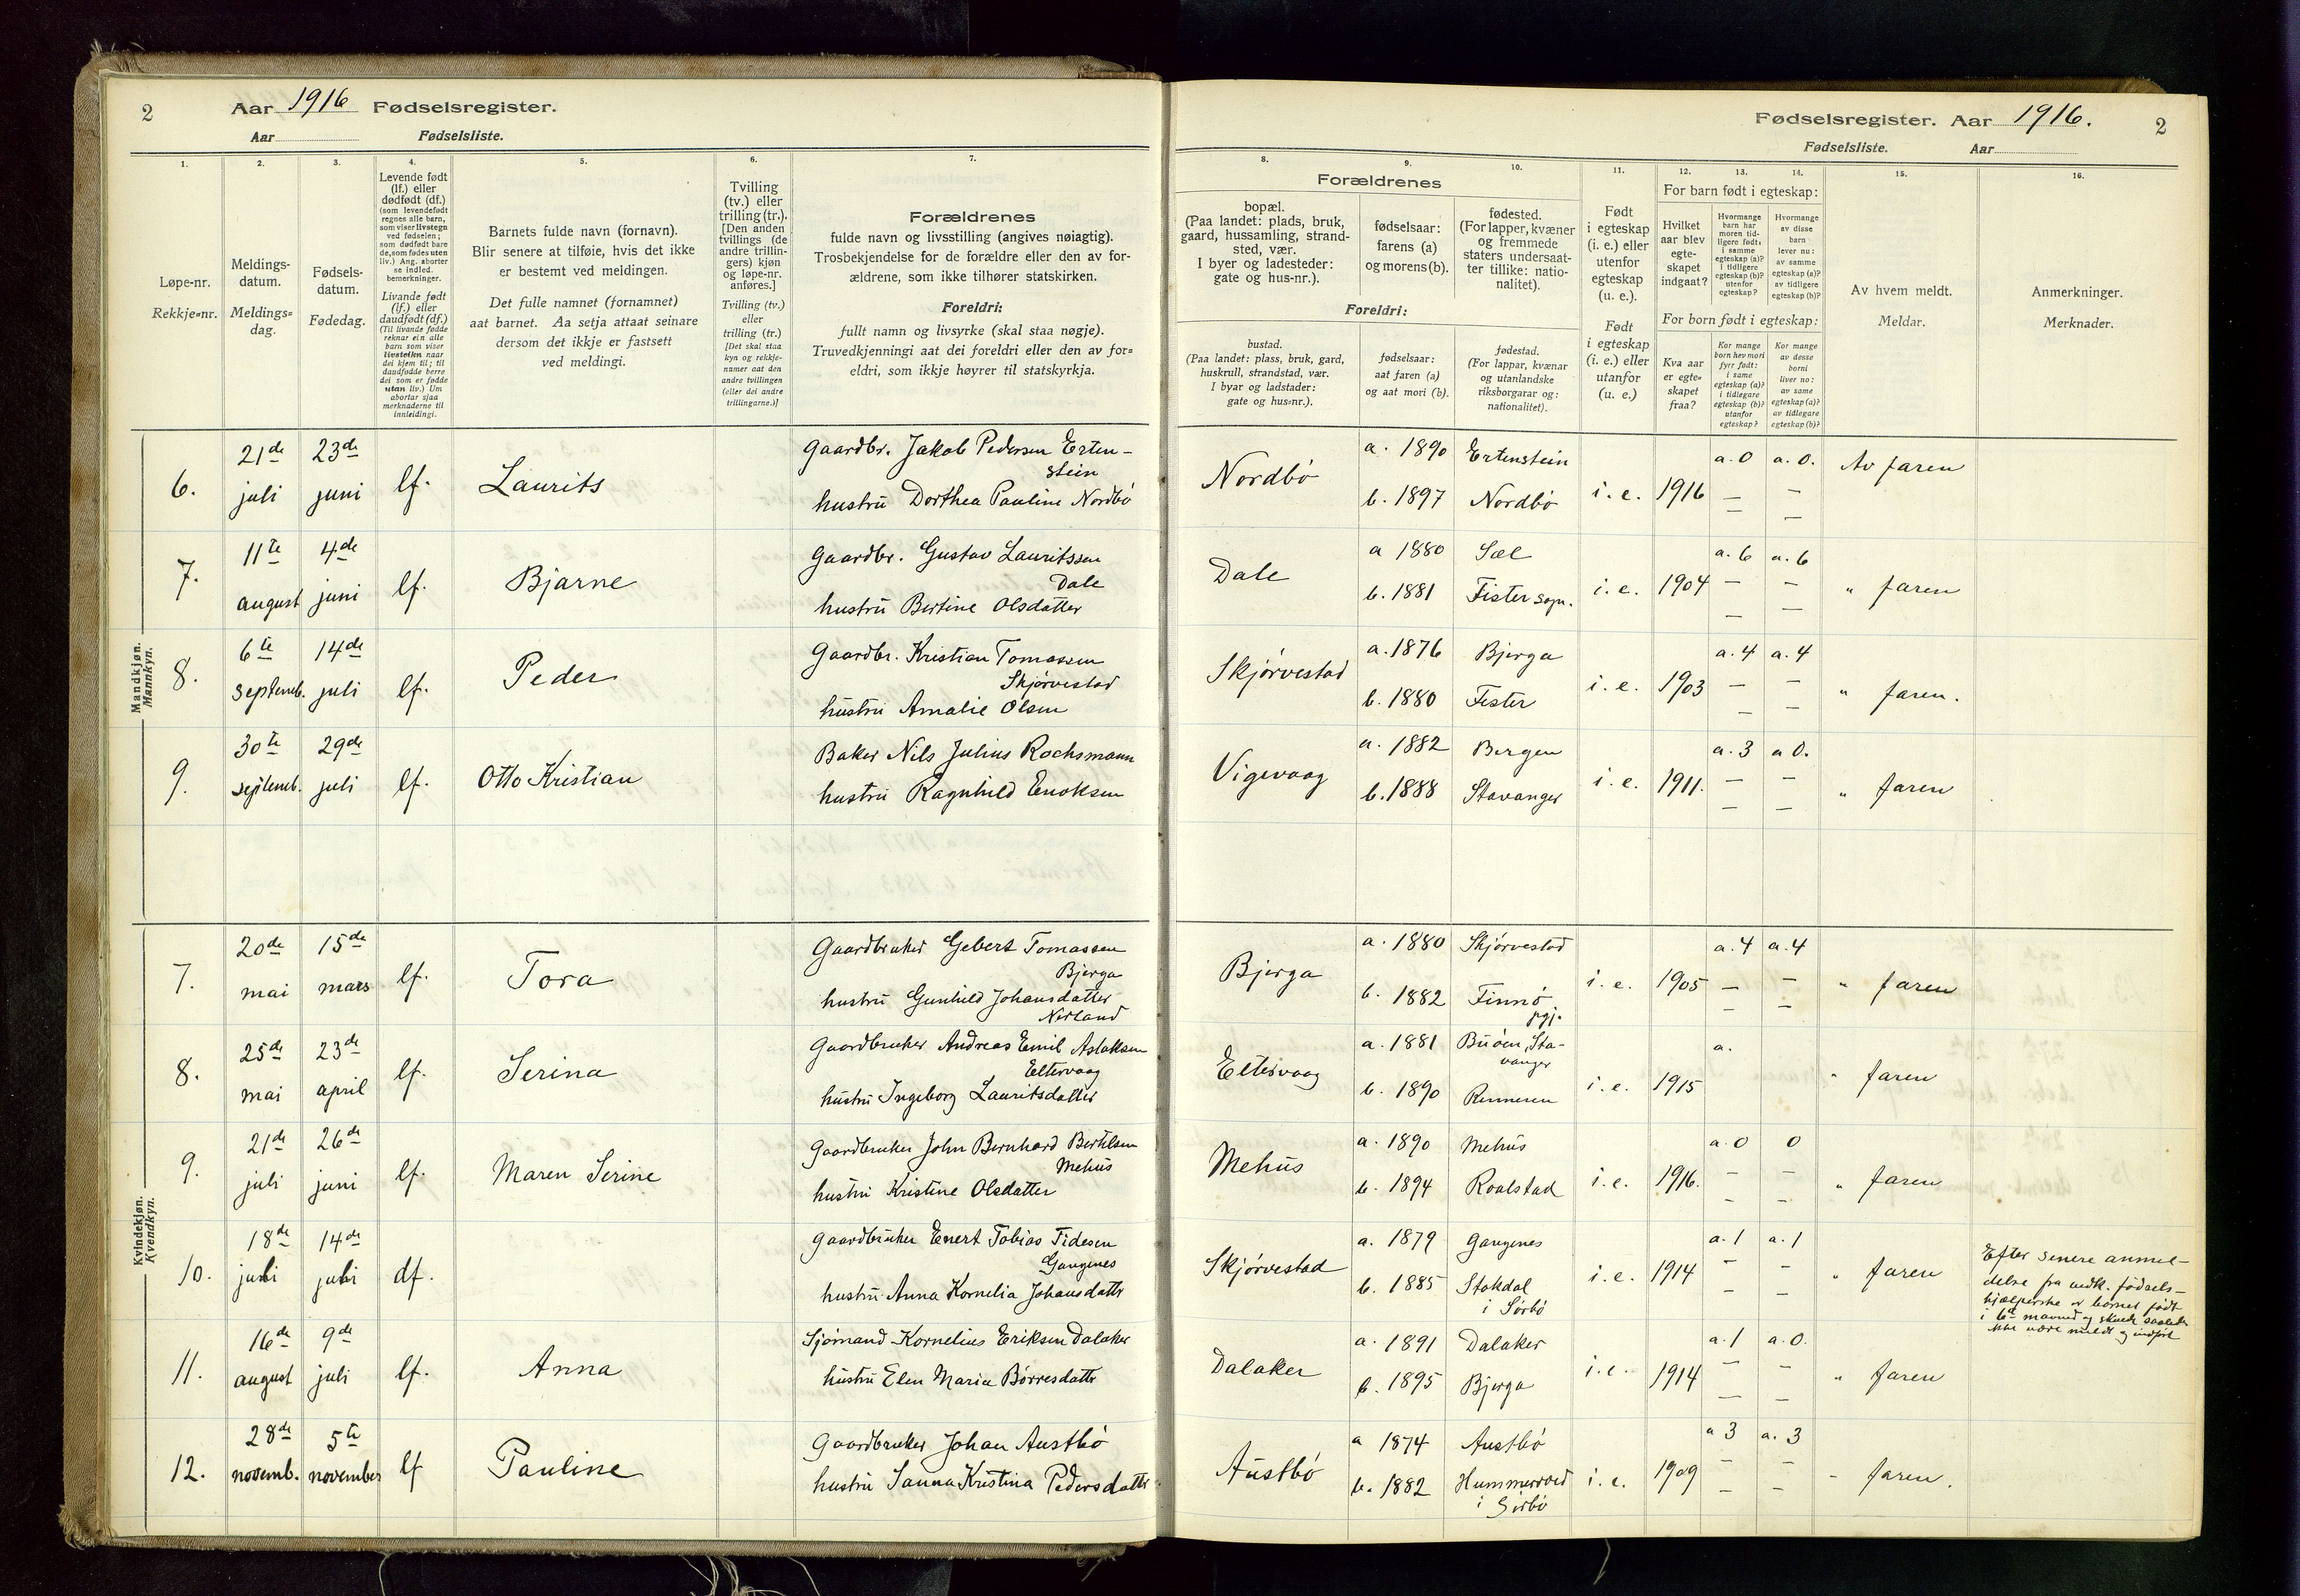 2
Aar 1916 Fødselsregister.
Aar Fødselsliste.
Fødselsregister. Aar 1916. 2
Fødselsliste. Aar
1. 2. 3. 4. 5. 6. 7.
Løpe-nr.
Rekkje=nr.
Meldings-
datum.
Meldings=
dag.
Fødsels-
datum.
Fødedag.
Levende født
(lf.) eller
dødfødt (df.)
(som levendefødt
regnes alle barn,
som viser livstegn
ved fødselen;
som dødfødt bare
de, som fødes uten
liv.) Ang. aborter
se indled.
bemerkninger.
Livande født
(lf.) eller
daudfødt (df.)
(Til livande fødde
reknar ein alle
barn som viser
livsteikn naar
dei kjem til; til
daudfødde berre
dei som er fødde
utan liv.) Um
abortar sjaa
merknaderne til
innleidingi.
Barnets fulde navn (fornavn).
Blir senere at tilføie, hvis det ikke
er bestemt ved meldingen.
Det fulle namnet (fornamnet)
aat barnet. Aa setja attaat seinare
dersom det ikkje er fastsett
ved meldingi.
Tvilling
(tv.) eller
trilling (tr.).
[Den anden
tvillings (de
andre trillin-
gers) kjøn
og løpe-nr.
anføres.]
Tvilling (tv.)
eller
trilling (tr.)
[Det skal staa
kyn og rekkje-
numer aat den
andre tvillingen
(eller dei andre
trillingarne.)]
Forældrenes
fulde navn og livsstilling (angives nøiagtig).
Trosbekjendelse for de forældre eller den av for-
ældrene, som ikke tilhører statskirken.
Foreldri:
fullt namn og livsyrke (skal staa nøgje).
Truvedkjenningi aat dei foreldri eller den av for=
eldri, som ikkje høyrer til statskyrkja.
8. 9. 10. 11. 12. 13. 14. 15. 16.
Forældrenes
bopæl.
(Paa landet: plads, bruk,
gaard, hussamling, strand-
sted, vær.
I byer og ladesteder:
gate og hus-nr.).
fødselsaar:
farens (a)
og morens (b).
fødested.
(For lapper, kvæner
og fremmede
staters undersaat-
ter tillike: natio-
nalitet).
Foreldri:
bustad.
(Paa landet: plass, bruk, gard,
huskrull, strandstad, vær.
I byar og ladstader:
gate og hus=nr.).
fødselsaar:
aat faren (a)
og aat mori (b).
fødestad.
(For lappar, kvænar
og utanlandske
riksborgarar og:
nationalitet).
Født
i egteskap
(i. e.) eller
utenfor
egteskap
(u. e.).
Født
i egteskap
(i. e.) eller
utanfor
(u. e.)
For barn født i egteskap:
Hvilket
aar blev
egte-
skapet
indgaat?
Hvormange
barn har
moren tid-
ligere født:
i samme
egteskap (a)?
i tidligere
egteskap (b)?
utenfor
egteskap?
Hvormange
av disse
barn
lever nu:
av samme
egteskap (a)?
av tidligere
egteskap (b)?
For born født i egteskap:
Kva aar
er egte=
skapet
fraa?
Kor mange
born hev mori
fyrr født:
i same
egteskap (a)?
i tidlegare
egteskap (b)?
utanfor
egteskap?
Kor mange
av desse
borni
liver no:
av same
egteskap (a)?
av tidlegare
egteskap (b)?
Av hvem meldt.
Meldar.
Anmerkninger.
Merknader.
Mandkjøn.
Mannkyn.
6. 21de juli 23de juni lf. Laurits
Gaardbr. Jakob Pedersen Erten-
stein
hustru Dorthea Pauline Nordbö
Nordbö a. 1890 Ertenstein a. 0 a. 0. Av faren
b. 1897 Nordbö i. e. 1916 — —
7. 11te august 4de juni lf. Bjarne
Gaardbr. Gustav Lauritssen
Dale
hustru Bertine Olsdatter
Dale a 1880 Sæl a. 6 a. 6
b. 1881 Fister sogn. i. e. 1904 — — " faren
8. 6te septemb. 14de juli lf. Peder
Gaardbr. Kristian Tomassen
Skjörvestad
hustru Amalie Olsen
Skjörvestad a. 1876 Bjerga a. 4 a. 4
b. 1880 Fister i. e. 1903 — — " faren.
9. 30te septemb. 29de juli lf. Otto Kristian
Baker Nils Julius Rochsmann
hustru Ragnhild Enoksen
Vigevaag a. 1882 Bergen a. 3 a 0.
b. 1888 Stavanger i. e. 1911. — — " faren
Kvindekjøn.
Kvendkyn.
7. 20de mai 15de mars lf. Tora
Gaardbruker Gebert Tomassen
Bjerga
hustru Gunhild Johansdatter
Nerland
Bjerga a. 1880 Skjörvestad a. 4 a. 4
b. 1882 Finnö pgj. i. e. 1905 — — " faren
8. 25de mai 23de april lf. Serina
Gaardbruker Andreas Emil Aslaksen
Eltervaag
hustru Ingeborg Lauritsdatter
Eltervaag a. 1881 Buöen, Sta-
vanger a.
b. 1890 Rennesen i. e. 1915 " faren
9. 21de juli 26de juni lf. Maren Serine
Gaardbruker John Bernhard Bertelsen
Mehus
hustru Kristine Olsdatter
Mehus a. 1890 Mehus a. 0 0
b. 1894 Roalstad i. e. 1916. — — " faren
10. 18de juli 14de juli df.
Gaardbruker Enert Tobias Tidesen
Gangenes
hustru Anna Kornelia Johansdattr
Skjörvestad a. 1879 Gangenes a. 1 a. 1
b. 1885 Stokdal
i Sörbö i. e. 1914 — — " faren
Efter senere anmel-
delse fra vedk. födsels-
hjælperske er barnet födt
i 6te maaned og skulde saaledes
ikke være meldt og indfört
11. 16de august 9de juli lf. Anna
Sjömand Kornelius Eriksen Dalaker
hustru Elen Maria Börresdattr
Dalaker a. 1891 Dalaker a. 1 a. 0.
b. 1895 Bjerga i. e. 1914 — — " faren
12. 28de novemb. 5te november lf Pauline
Gaardbruker Johan Austbö
hustru Sanna Kristina Pedersdattr
Austbö a 1874 Austbö a 3 a. 3
b. 1882 Hummervold
i Sörbö i. e. 1909 — — " faren.